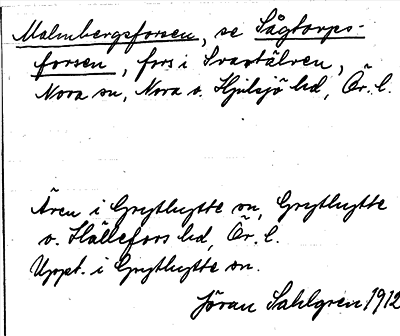 Malmbergsforsen, se Sågtorps-
forsen, fors i Svartälven,
Nora sn, Nora o. Hjulsjö hd, Ör. l.
Även i Grythytte sn, Grythytte
o. Hällefors hd, Ör. l.
Uppt. i Grythytte sn.
Jöran Sahlgren 1912